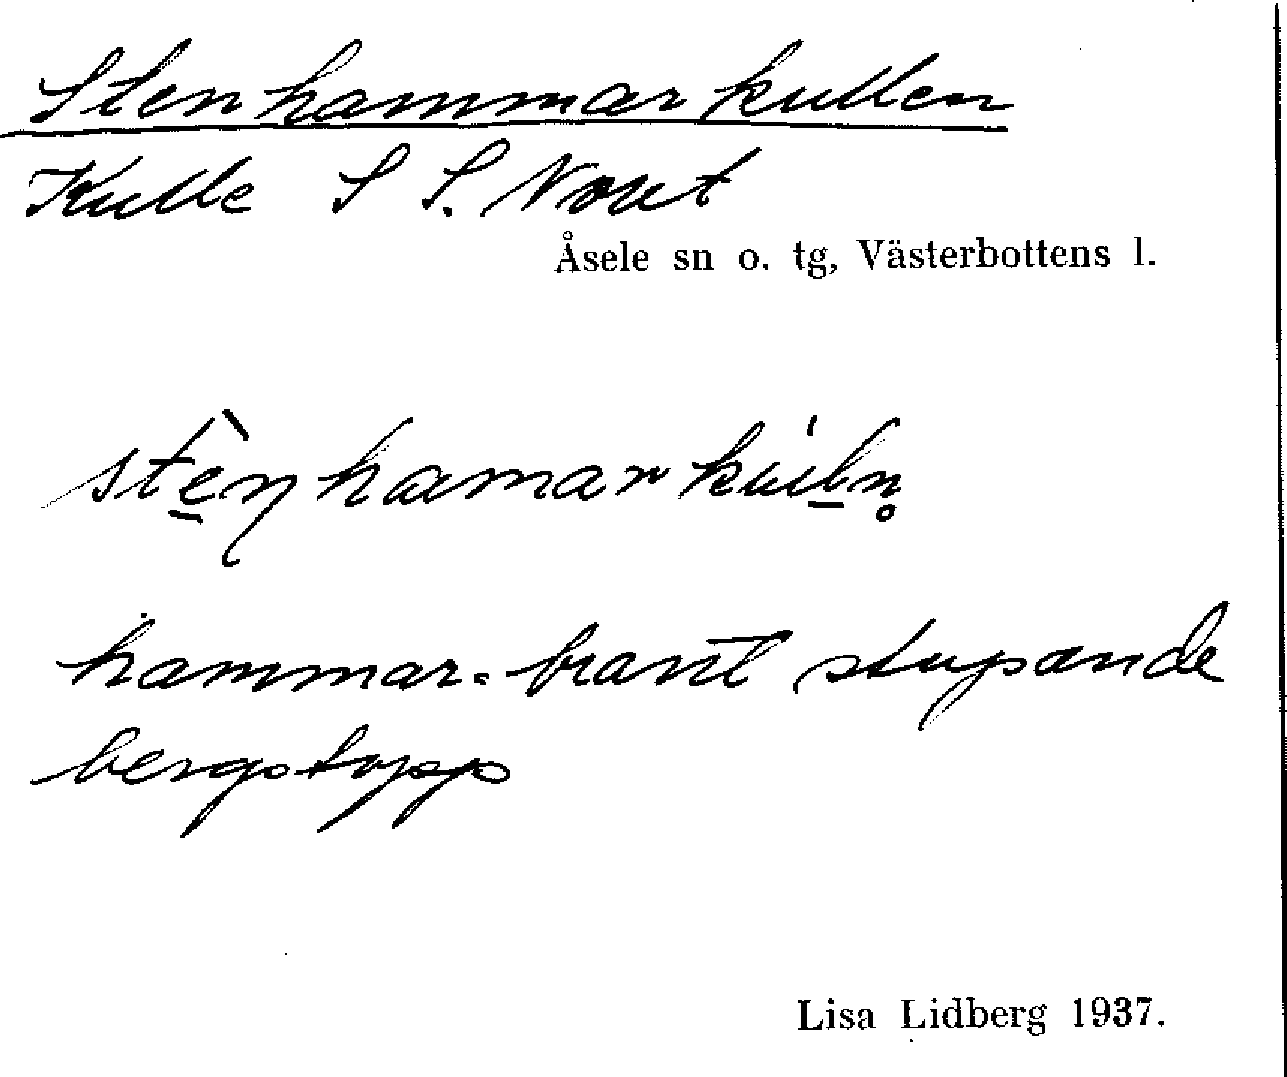 Stenhammarkullen
Kulle S S. Nort
Åsele sn o. tg, Västerbottens l.
hammar = brant stupande
bergstopp
Lisa Lidberg 1937.